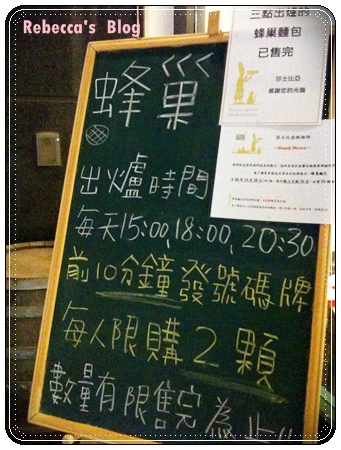 Rebecca's Blog
三點出爐的
蜂巢麵包
已售完
莎士比亞
感謝您的光臨
~Good News~
蜂巢
出爐時間
每天15:00,18:00、20:30
前10分鐘發號碼牌
每人限購2顆
數量有限售完為止!!